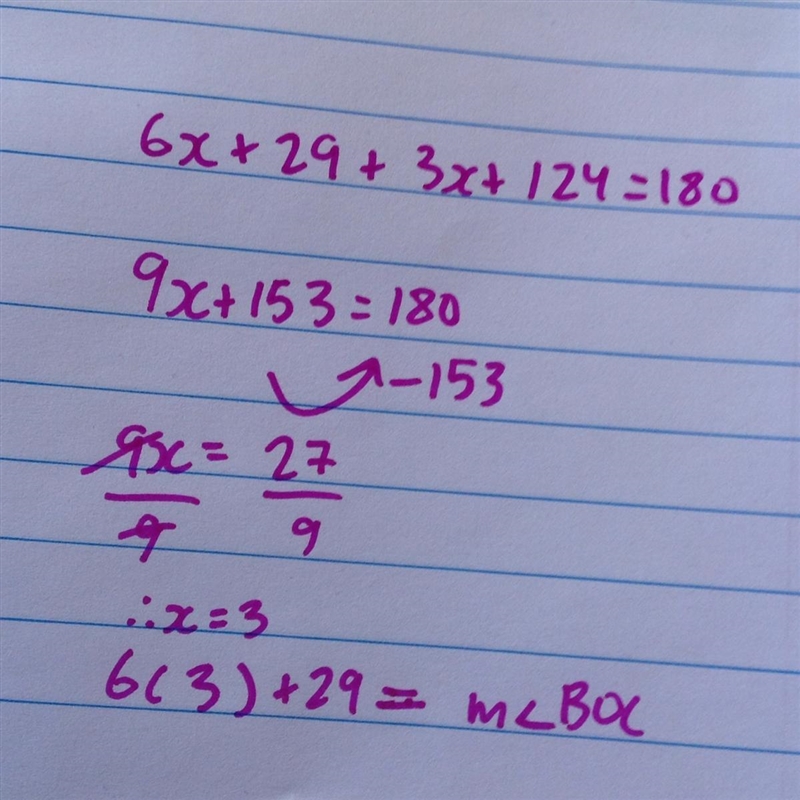 6x + 29 + 3x + 124 = 180
9x + 153 = 180
- 153
9x = 27
9 9
∴ x = 3
6(3) + 29 = m∠BOC